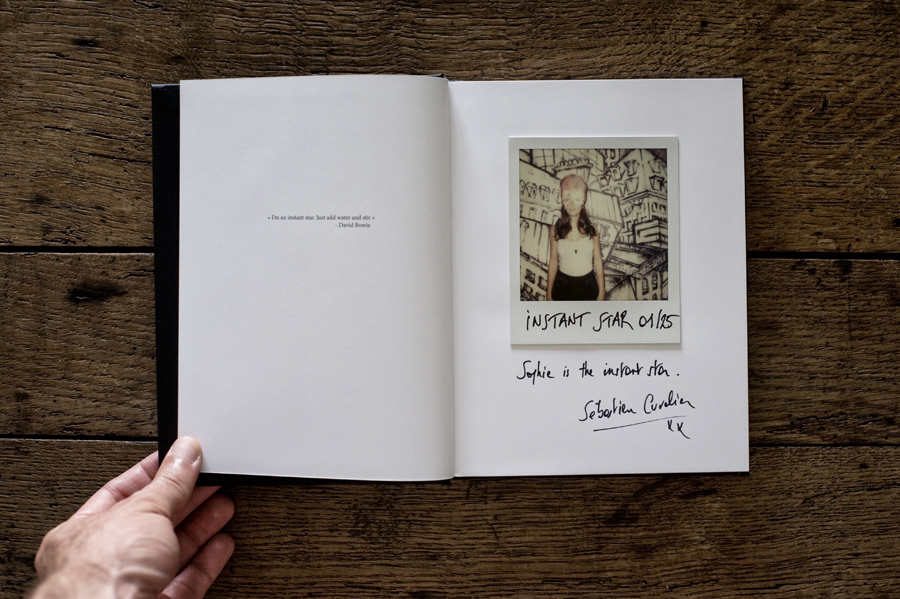 « I'm an instant star. Just add water and stir »
- David Bowie
iNSTANT STAR 01/25
Sophie is the instant star.
Sébastien Cuvelier
xx